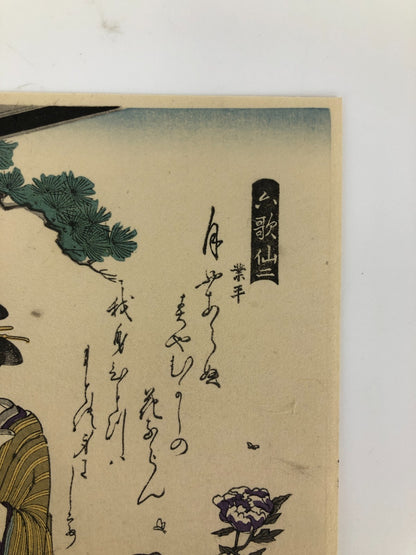 六歌仙二
業平
月やあらぬ
春やむかしの
花ならん
我身ひとつハ
もとの身にして